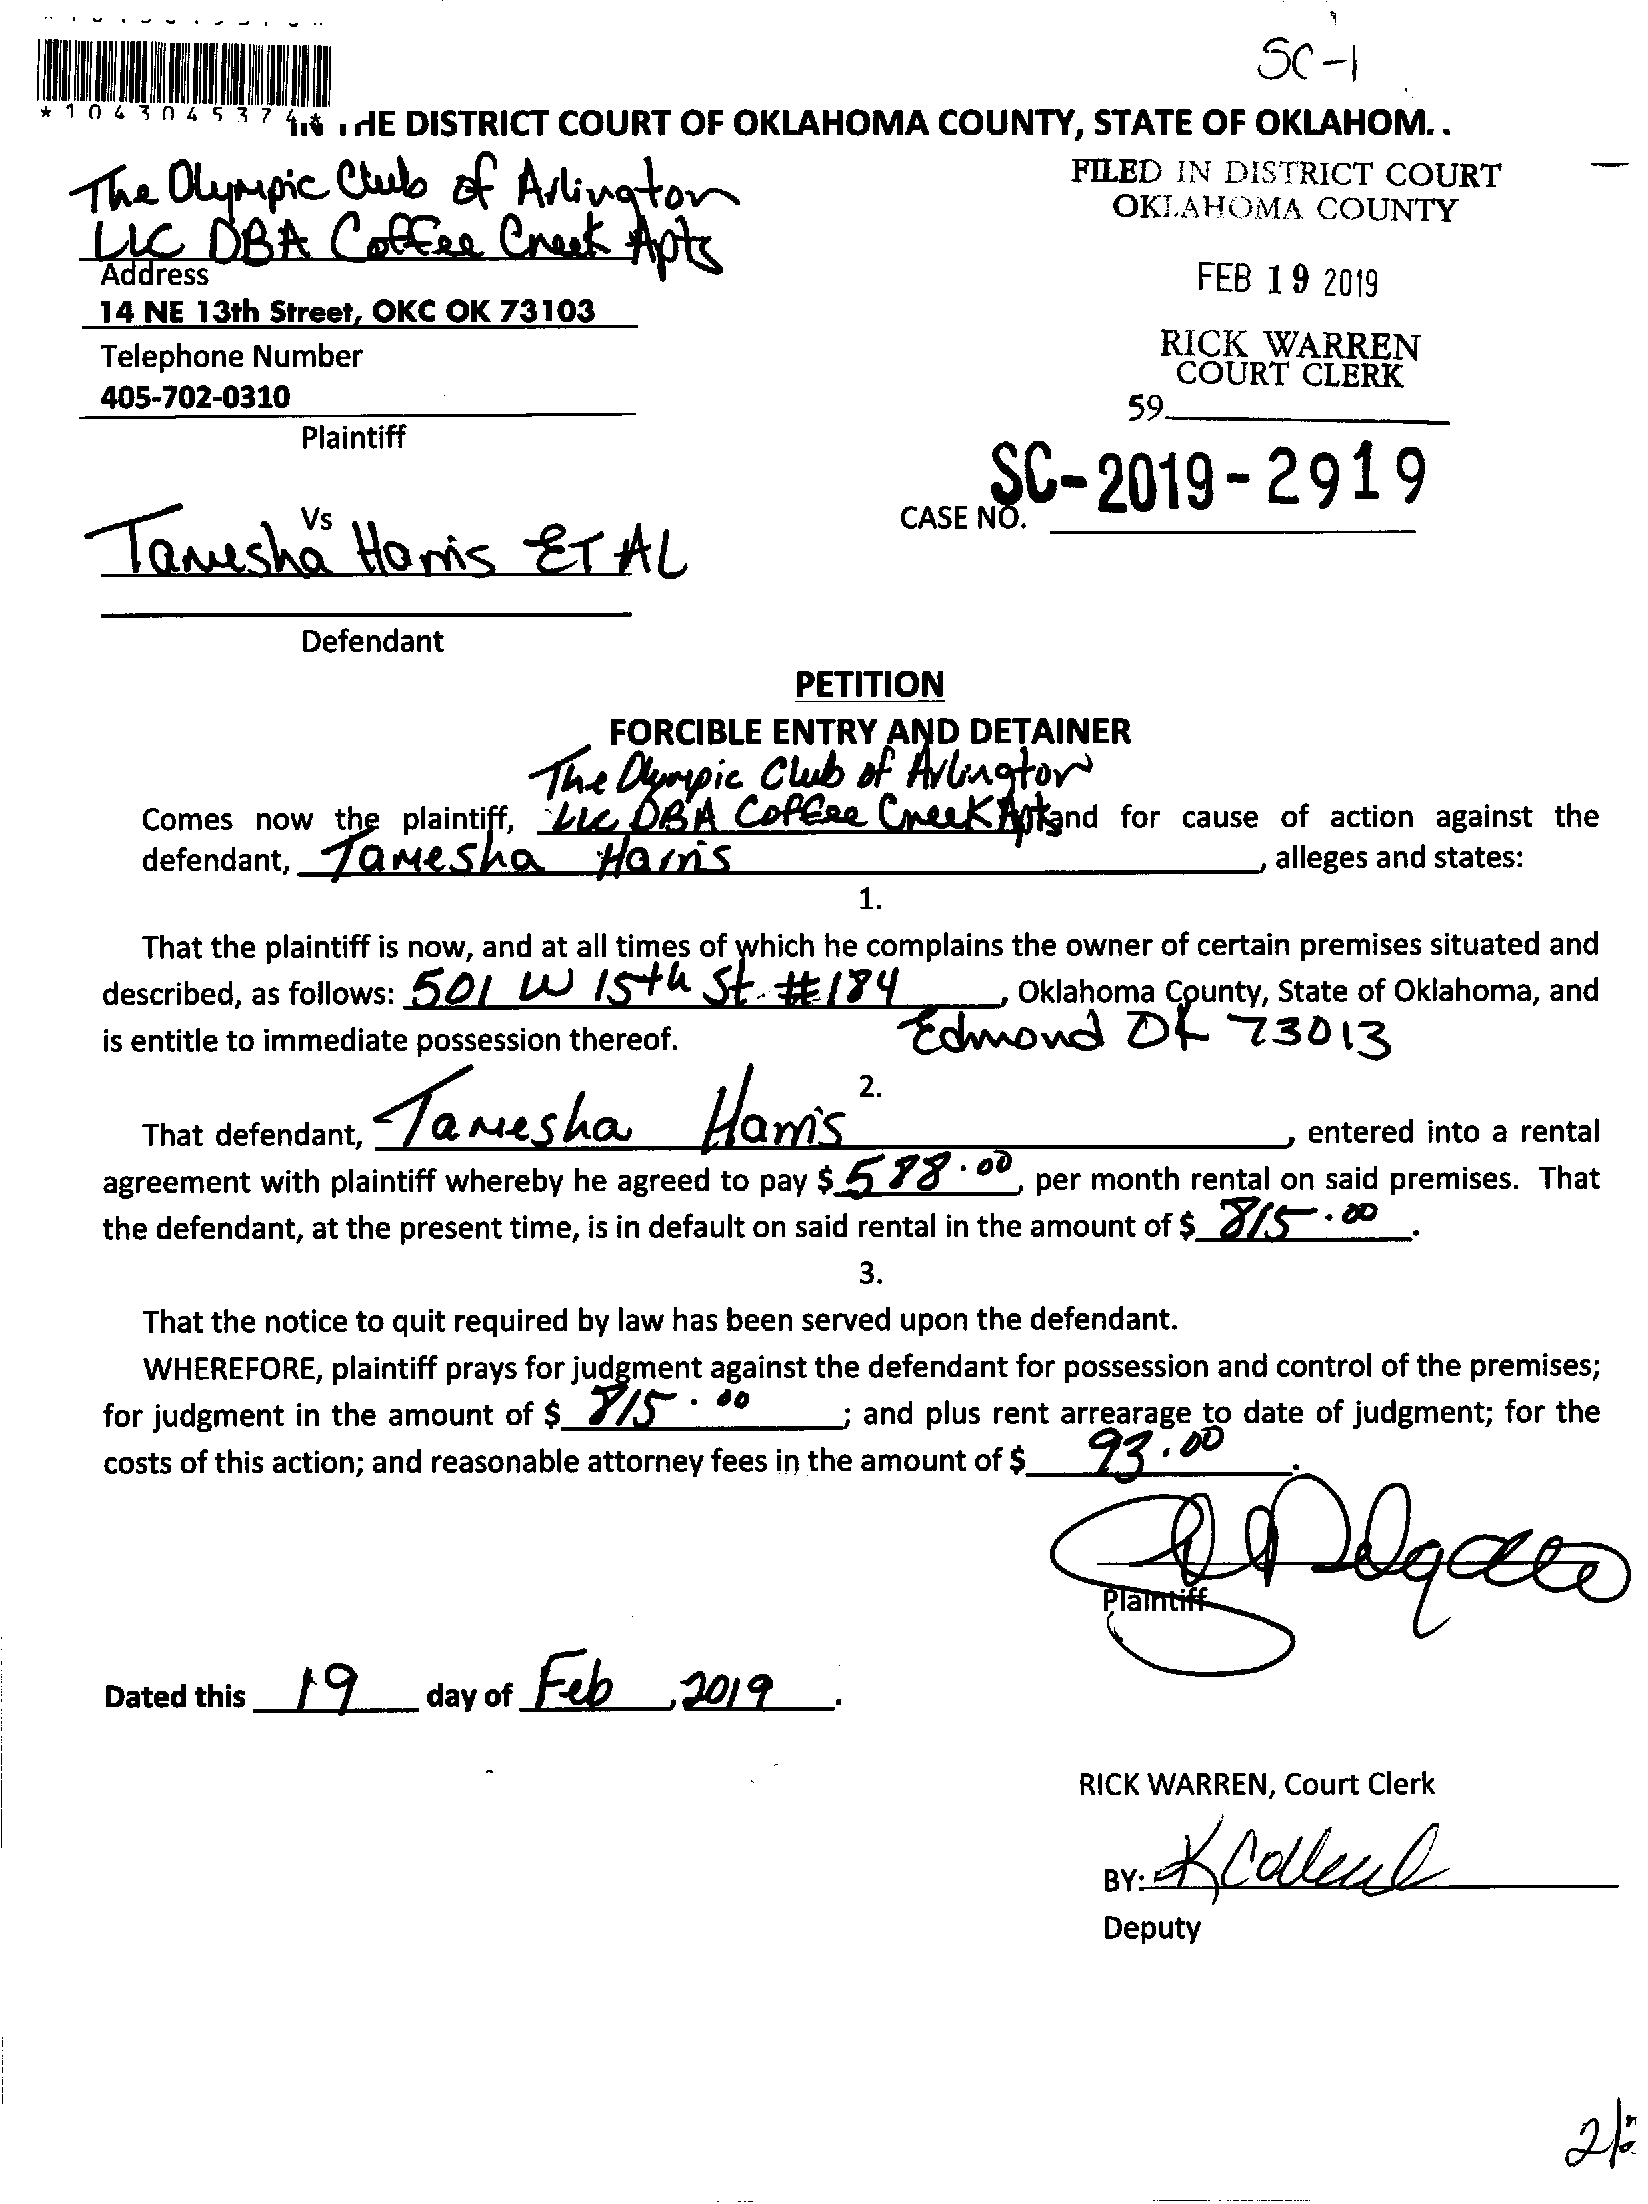 SC-1
*1043045374*
DISTRICT COURT OF OKLAHOMA COUNTY, STATE OF OKLAHOM
The Olympic Club of Arlington
LLC DBA Coffee Creek Apts
Address
14 NE 13th Street, OKC OK 73103
Telephone Number
405-702-0310
Plaintiff
FILED IN DISTRICT COURT
OKLAHOMA COUNTY
FEB 19 2019
RICK WARREN
COURT CLERK
59
SC-2019-2919
CASE NO.
Vs
Tamesha Harris ET AL
Defendant
PETITION
FORCIBLE ENTRY AND DETAINER
The Olympic Club of Arlington
Comes now the plaintiff, LLC DBA Coffee Creek Apts and for cause of action against the
defendant, Tamesha Harris, alleges and states:
1.
That the plaintiff is now, and at all times of which he complains the owner of certain premises situated and
described, as follows: 501 W 15th St. #184, Oklahoma County, State of Oklahoma, and
is entitle to immediate possession thereof. Edmond OK 73013
2.
That defendant, Tamesha Harris, entered into a rental
agreement with plaintiff whereby he agreed to pay $ 588.00, per month rental on said premises. That
the defendant, at the present time, is in default on said rental in the amount of $ 815.00.
3.
That the notice to quit required by law has been served upon the defendant.
WHEREFORE, plaintiff prays for judgment against the defendant for possession and control of the premises;
for judgment in the amount of $ 815.00; and plus rent arrearage to date of judgment; for the
costs of this action; and reasonable attorney fees in the amount of $ 93.00.
Delgado
Plaintiff
Dated this 19 day of Feb, 2019.
RICK WARREN, Court Clerk
BY:
Deputy